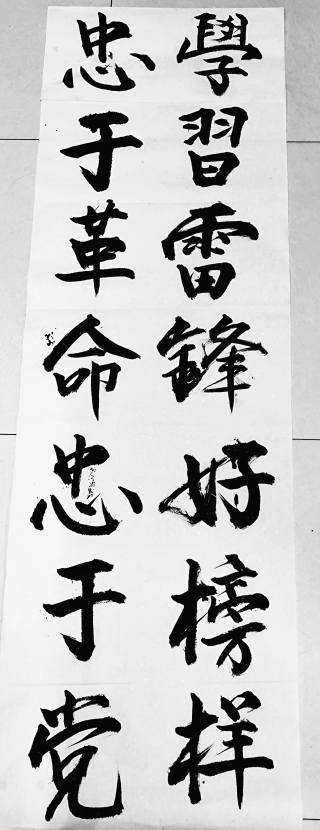 學習雷鋒好榜样
忠于革命忠于党